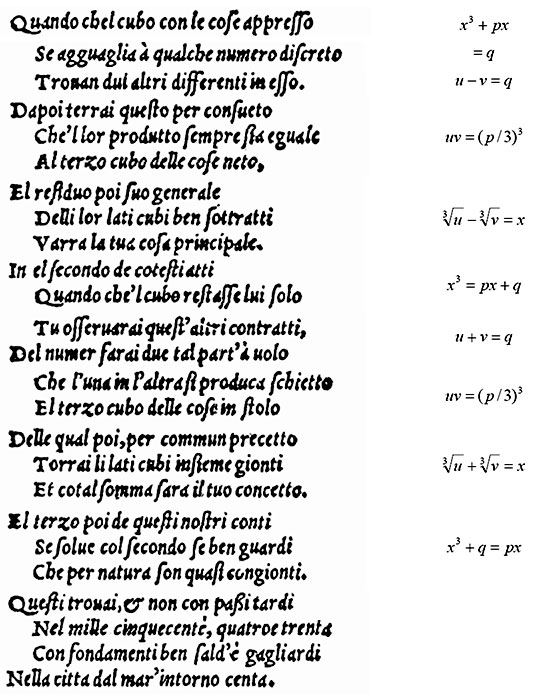 Quando chel cubo con le coſe appreſſo x³ + px
Se agguaglia à qualche numero diſcreto = q
Trouan dui altri differenti in eſſo. u − v = q
Dapoi terrai queſto per conſueto
Che'l lor produtto ſempre ſia eguale uv = (p / 3)³
Al terzo cubo delle coſe neto,
El reſiduo poi ſuo generale
Delli lor lati cubi ben ſottratti ∛u − ∛v = x
Varra la tua coſa principale.
In el ſecondo de coteſti atti
Quando che'l cubo reſtaſſe lui ſolo x³ = px + q
Tu oſſeruarai queſt'altri contratti, u + v = q
Del numer farai due tal part'à uolo
Che l'una in l'altra ſi produca ſchietto uv = (p / 3)³
El terzo cubo delle coſe in ſtolo
Delle qual poi, per commun precetto
Torrai li lati cubi inſieme gionti ∛u + ∛v = x
Et cotal ſomma ſara il tuo concetto.
El terzo poi de queſti noſtri conti
Se ſolue col ſecondo ſe ben guardi x³ + q = px
Che per natura ſon quaſi congionti.
Queſti trouai, & non con paßi tardi
Nel mille cinquecentè, quatroe trenta
Con fondamenti ben ſald'è gagliardi
Nella citta dal mar'intorno centa.